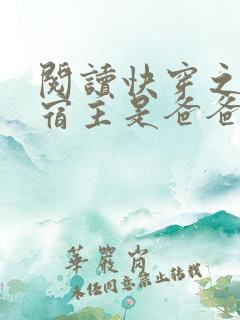 閱讀快穿之
宿主是爸爸
華嚴崗
未經同意禁止轉載